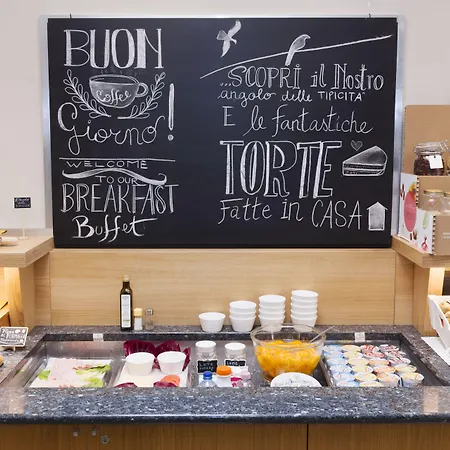 BUON
Coffee
Giorno!
WELCOME
TO OUR
BREAKFAST
Buffet
...SCOPRI il Nostro
angolo delle TIPICITA'
E le Fantastiche
TORTE
Fatte in CASA